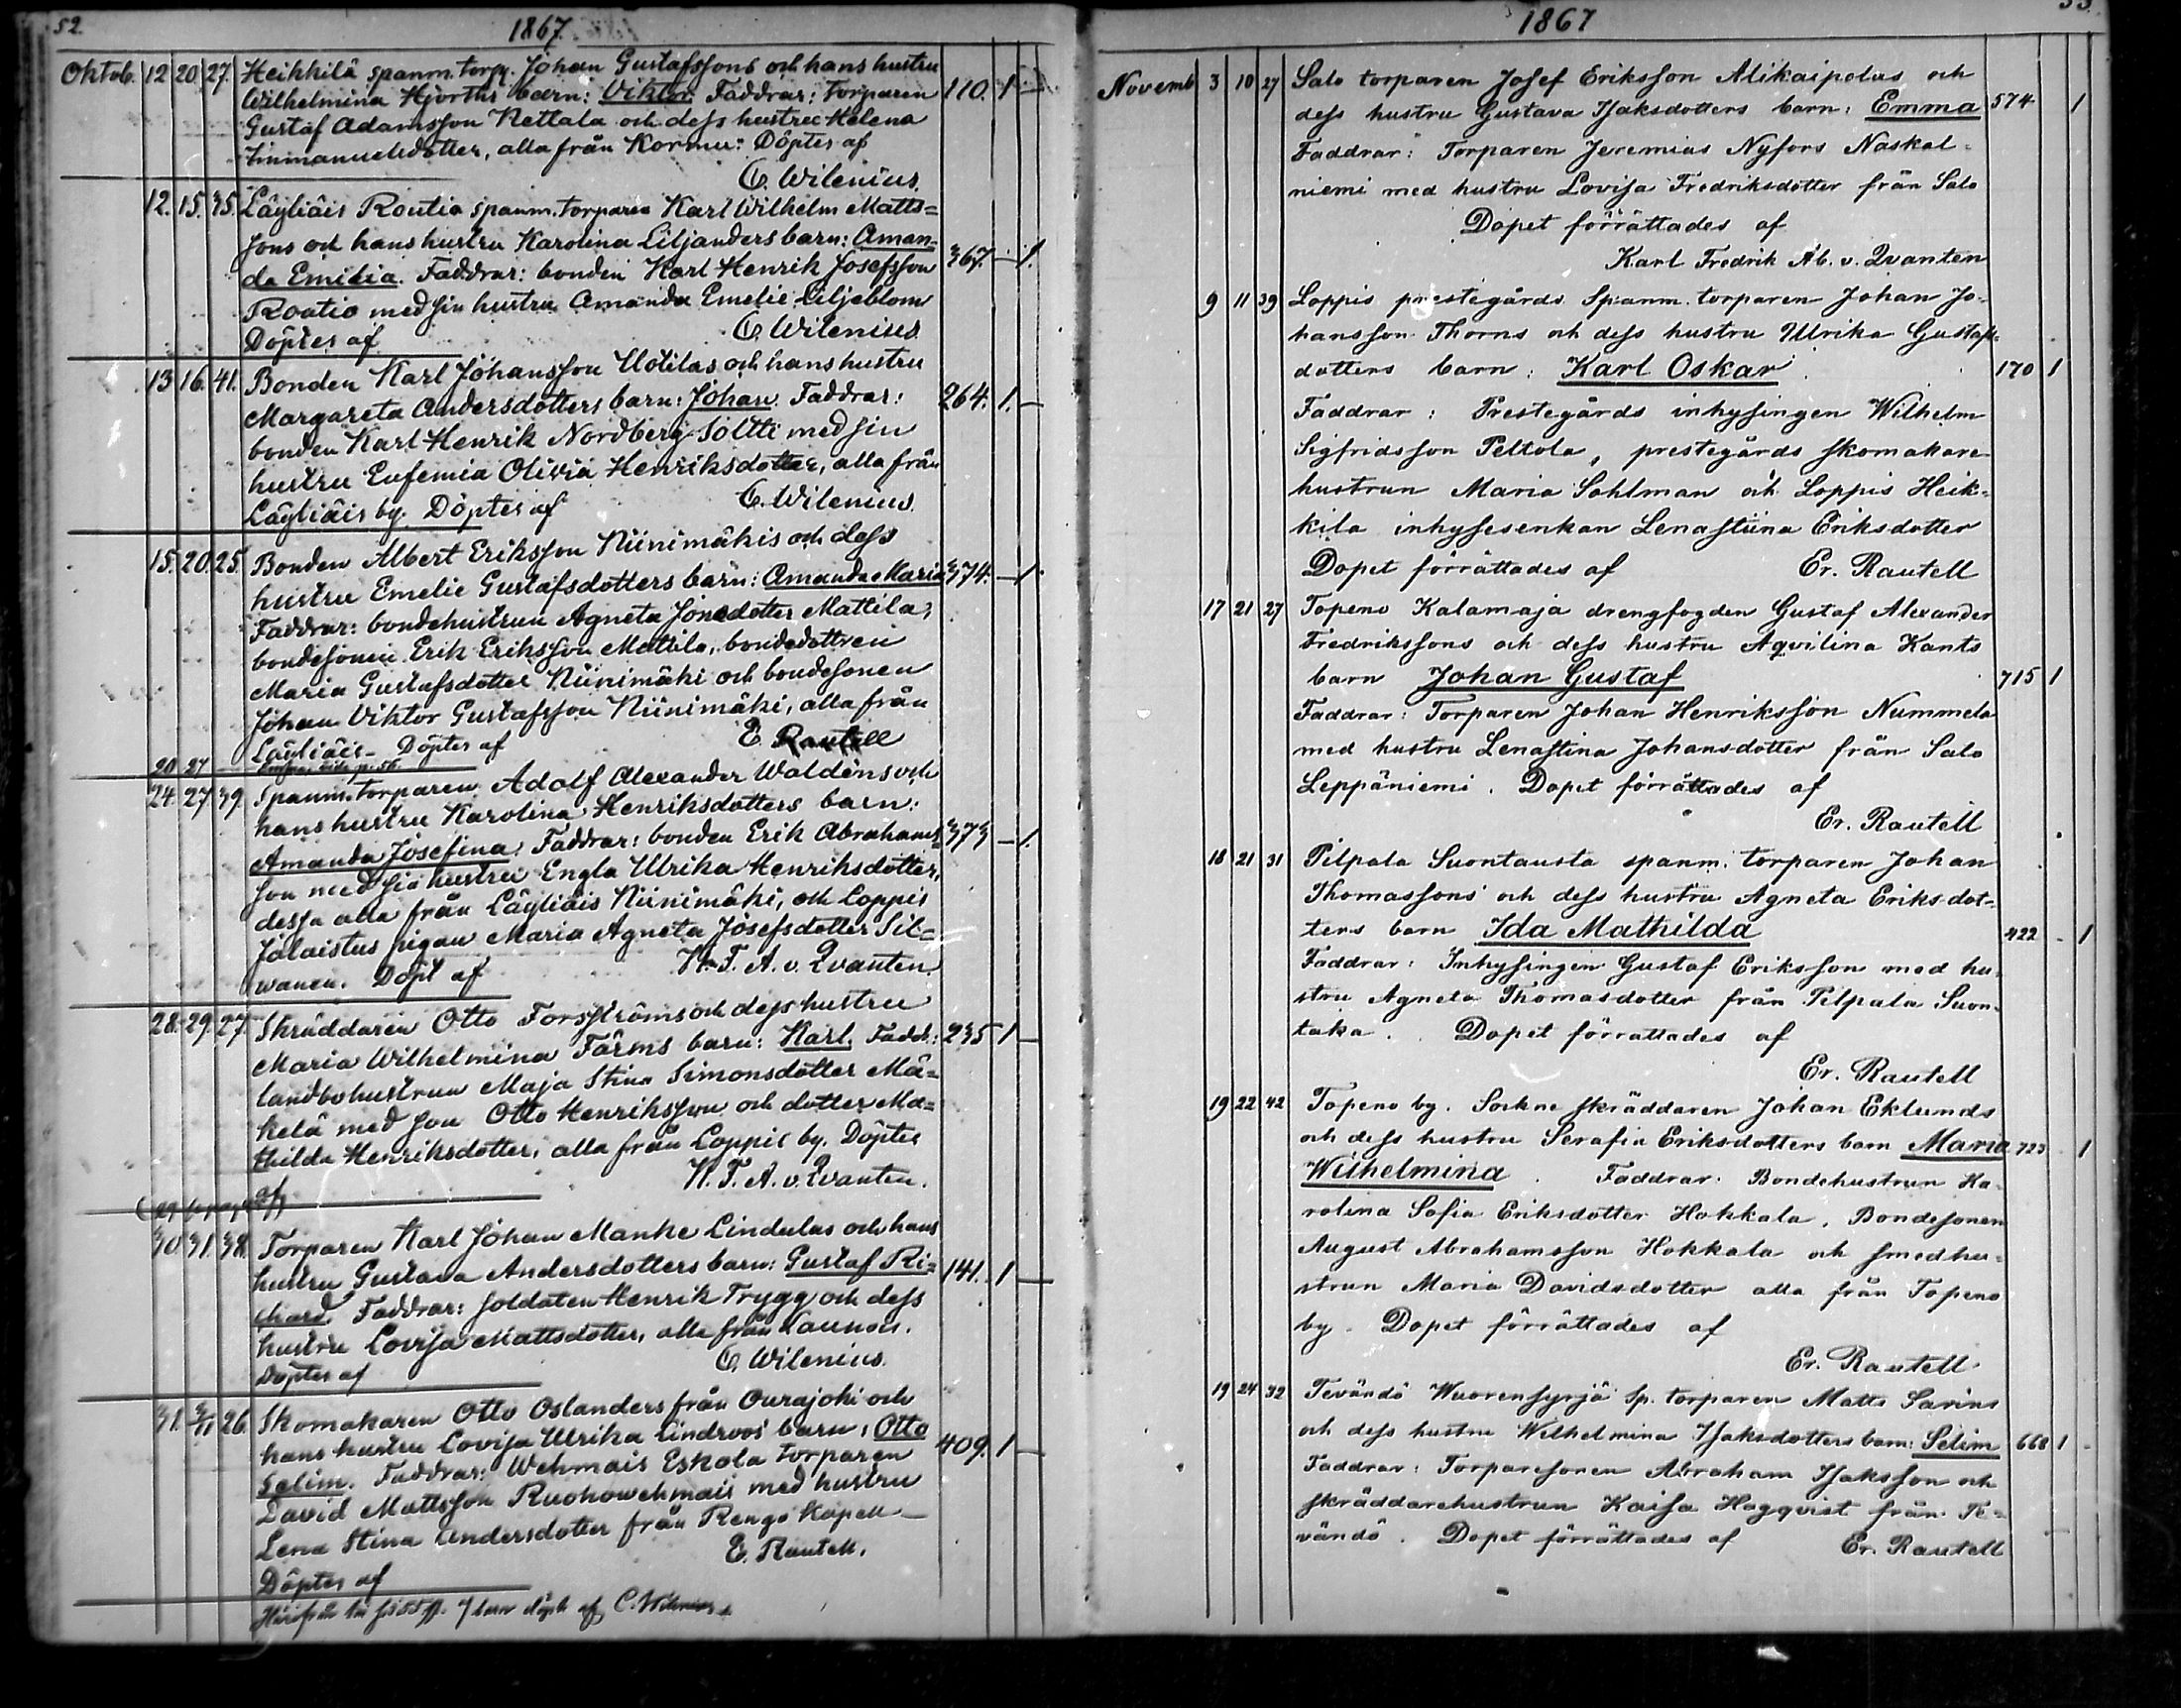 52.
1867.
Oktob. 12 20 27. Heikkilä spanm. torp. Johan Gustafssons och hans hustru
Wilhelmina Hjorths barn: Viktor. Faddrar: Torparen 110. 1
Gustaf Adamsson Nettala och dess hustru Helena
Emmanuelsdotter, alla från Kormu. Döptes af
C. Wilenius.
12. 15. 35. Läyliäis Routio spanm. torparen Karl Wilhelm Matts=
sons och hans hustru Karolina Liljanders barn: Aman=
da Emilia. Faddrar: bonden Karl Henrik Josefsson 367. 1.
Routio med sin hustru Amanda Emelie Liljeblom
Döptes af C. Wilenius
13 16. 41. Bonden Karl Johansson Uotilas och hans hustru
Margareta Andersdotters barn: Johan. Faddrar: 264. 1.
bonden Karl Henrik Nordberg Soltti med sin
hustru Eufemia Olivia Henriksdotter, alla från
Läyliäis by. Döptes af C. Wilenius.
15. 20. 25. Bonden Albert Eriksson Niinimäkis och dess
hustru Emelie Gustafsdotters barn: Amanda Maria 374. 1.
Faddrar: bondehustrun Agneta Jonedotter Mattila,
bondesonen Erik Eriksson Mattila, bondedottren
Maria Gustafsdotter Niinimäki och bondesonen
Johan Viktor Gustafsson Niinimäki, alla från
Läyliäis. Döptes af E. Rautell
20 27
24. 27. 39. Spanm. torparen Adolf Alexander Waldéns och
hans hustru Karolina Henriksdotters barn:
Amanda Josefina. Faddrar: bonden Erik Abrahams= 373 1.
son med sin hustru Engla Ulrika Henriksdotter,
dessa alla från Läyliäis Niinimäki, och Loppis
Jolaistus pigan Maria Agneta Josefsdotter Sil=
wanen. Döpt af K. F. A. v. Qvanten.
28. 29. 27. Skräddaren Otto Forsströms och dess hustru
Maria Wilhelmina Färms barn: Karl. Fadd.: 235 1
landbohustrun Maja Stina Simonsdotter Mä=
kelä med son Otto Henriksson och dotter Ma=
thilda Henriksdotter, alla från Loppis by. Döptes
af K. F. A. v. Qvanten.
30 31. 38. Torparen Karl Johan Manke Lindulas och hans
hustru Gustava Andersdotters barn: Gustaf Ri= 141. 1
chard. Faddrar: soldaten Henrik Trygg och dess
hustru Lovisa Mattsdotter, alla från Launois.
Döptes af C. Wilenius.
31. 3/11 26. Skomakaren Otto Oslanders från Ourajoki och
hans hustru Lovisa Ulrika Lindroos' barn: Otto
Selim. Faddrar: Wehmais Eskola torparen 409. 1
David Mattsson Ruohowehmais med hustru
Lena Stina Andersdotter från Rengo Kapell
Döptes af E. Rautell.
barn af C. Wilenius
1867
Novemb 3 10 27 Salo torparen Josef Eriksson Alikaipolas och
dess hustru Gustava Isaksdotters barn: Emma 574 1
Faddrar: Torparen Jeremias Nyfors Naskal=
niemi med hustru Lovisa Fredriksdotter från Salo
Dopet förrättades af
Karl Fredrik Ab. v. Qvanten
9 11 39 Loppis prestegårds Spanm. torparen Johan Jo=
hansson Thorns och dess hustru Ulrika Gustafs=
dotters barn: Karl Oskar 170 1
Faddrar: Prestegårds inhysingen Wilhelm
Sigfridsson Peltola, prestegårds skomakare
hustrun Maria Sohlman och Loppis Heik=
kila inhysesenkan Lenastiina Eriksdotter
Dopet förrättades af Er. Rautell
17 21 27 Topeno Kalamaja drengfogden Gustaf Alexander
Fredrikssons och dess hustru Aqvilina Kants
barn Johan Gustaf 715 1
Faddrar: Torparen Johan Henriksson Nummela
med hustru Lenastina Johansdotter från Salo
Leppäniemi. Dopet förrättades af
Er. Rautell
18 21 31 Pilpala Suontausta spanm. torparen Johan
Thomassons och dess hustru Agneta Eriksdot=
ters barn Ida Mathilda 422 1
Faddrar: Inhysingen Gustaf Eriksson med hu=
stru Agneta Thomasdotter från Pilpala Suon=
taka. Dopet förrättades af
Er. Rautell
19 22 42 Topeno by. Sockne skräddaren Johan Eklunds
och dess hustru Serafia Eriksdotters barn Maria 723 1
Wilhelmina. Faddrar: Bondehustrun Ka=
rolina Sofia Eriksdotter Hokkala, Bondesonen
August Abrahamsson Hokkala och smedhu=
strun Maria Davidsdotter alla från Topeno
by. Dopet förrättades af
Er. Rautell
19 24 32 Tevändö Wuorensyrjä Sp. torparen Matts Sarins
och dess hustru Wilhelmina Isaksdotters barn: Selim 668 1
Faddrar: Torparesonen Abraham Isaksson och
skräddarehustrun Kaisa Hagqvist från Te=
vändö. Dopet förrättades af Er. Rautell